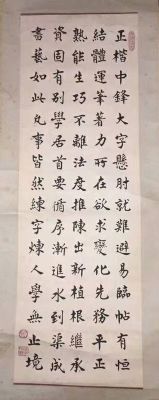 正楷中鋒大字懸肘就難避易臨帖有恒
結體運筆著力所在欲求變化先務平正
熟能生巧不離法度推陳出新植根繼承
資固有別學居首要循序漸進水到渠成
書藝如此凡事皆然練字煉人學無止境